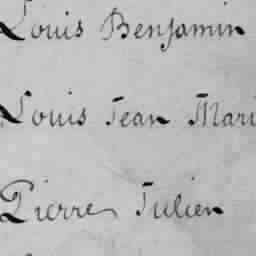 Louis Benjamin
Louis Jean Mari
Pierre Julien